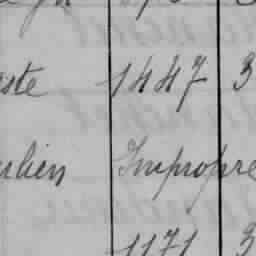 ste 1447 3
lien Impropre
1171 3